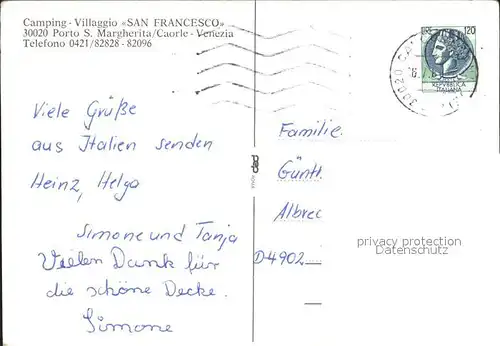 Camping - Villaggio «SAN FRANCESCO»
30020 Porto S. Margherita/Caorle - Venezia
Telefono 0421/82828 - 82096
Viele Grüße
aus Italien senden
Heinz, Helga
Simone und Tanja
Vielen Dank für
die schöne Decke.
Simone
LIRE 120
REPVBBLICA
ITALIANA
30020
Familie
Günth
Albrec
D-4902
privacy protection
Datenschutz